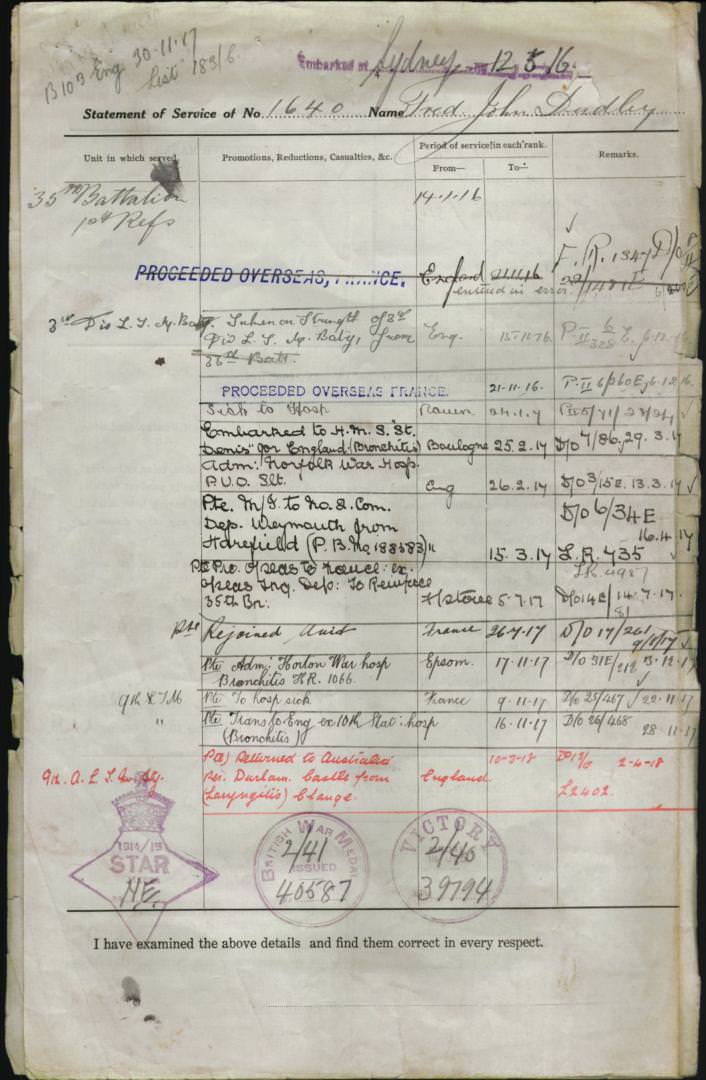 B103 Eng 30-11-17
List 183/6.
Embarked at Sydney on 12 5 16.
Statement of Service of No. 1640 Name Fred John Dudley
Unit in which served. Promotions, Reductions, Casualties, &c. Period of service in each rank. Remarks.
From— To—
35th Battalion 14.1.16
1st Refs
PROCEEDED OVERSEAS, FRANCE. England 21.11.16
entered in error
3rd Div L. T. M. Baty. Taken on Strength of 3rd
Div L. T. M. Baty, from Eng.
36th Batt.
PROCEEDED OVERSEAS FRANCE. 21-11-16.
Sick to Hosp Rouen 24.1.17
Embarked to H. M. S. "St.
Denis" for England (Bronchitis) Boulogne 25.2.17 D/O 7/86, 29.3.17
Adm: Norfolk War Hosp.
P.U.O. Slt. Eng 26.2.17 D/O 3/15E. 13.3.17
Pte. M/I to No. 2. Com. D/O 6/34E
Dep. Weymouth from 16.4.17
Harefield (P.B. No. 188583) 15.3.17 L.R. 735
Pte Pro. O'seas to France: ex. L.R. 4987
O'seas Trg. Dep: To Reinforce
35th Bn: F/stone 5.7.17 D/O 14E/81 14.7.17
Pte Rejoined Unit France 26.7.17 D/O 17/261 9/8/17
Pte Adm: Horton War hosp Epsom. 17.11.17 D/O 31E/212 3.12.17
Bronchitis H.R. 1066.
9th LTM Pte To hosp sick France 9.11.17 D/o 25/467 22.11.17
" Pte Trans to Eng ex 10th Stat: hosp 16.11.17 D/o 26/468
(Bronchitis) 28.11.17
Returned to Australia 10-3-18 2-4-18
9th. A. L. T. M. Bty. Per. Durham Castle from England.
(Laryngitis) Change. L2402.
1914/15
STAR
NE.
BRITISH WAR MEDAL
2/41
ISSUED
40587
VICTORY
2/40
39794
I have examined the above details and find them correct in every respect.